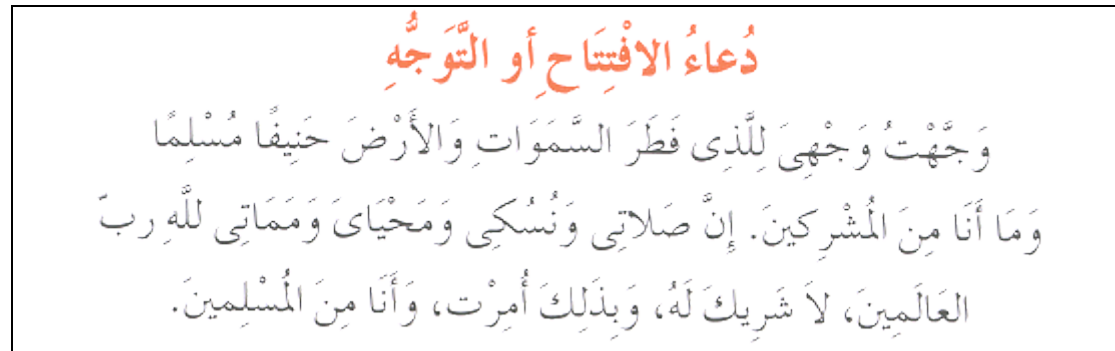 دُعاءُ الافْتِتَاحِ أو التَّوَجُّهِ
وَجَّهْتُ وَجْهِىَ لِلَّذِى فَطَرَ السَّمَوَاتِ وَالأَرْضَ حَنِيفًا مُسْلِمًا
وَمَا أَنَا مِنَ الْمُشْرِكينَ. إِنَّ صَلاتِى وَنُسُكِى وَمَحْيَاىَ وَمَمَاتِى للَّهِ ربّ
العَالَمِينَ، لاَ شَرِيكَ لَهُ، وَبِذَلِكَ أُمِرْت، وَأَنَا مِنَ الْمُسْلِمينَ.